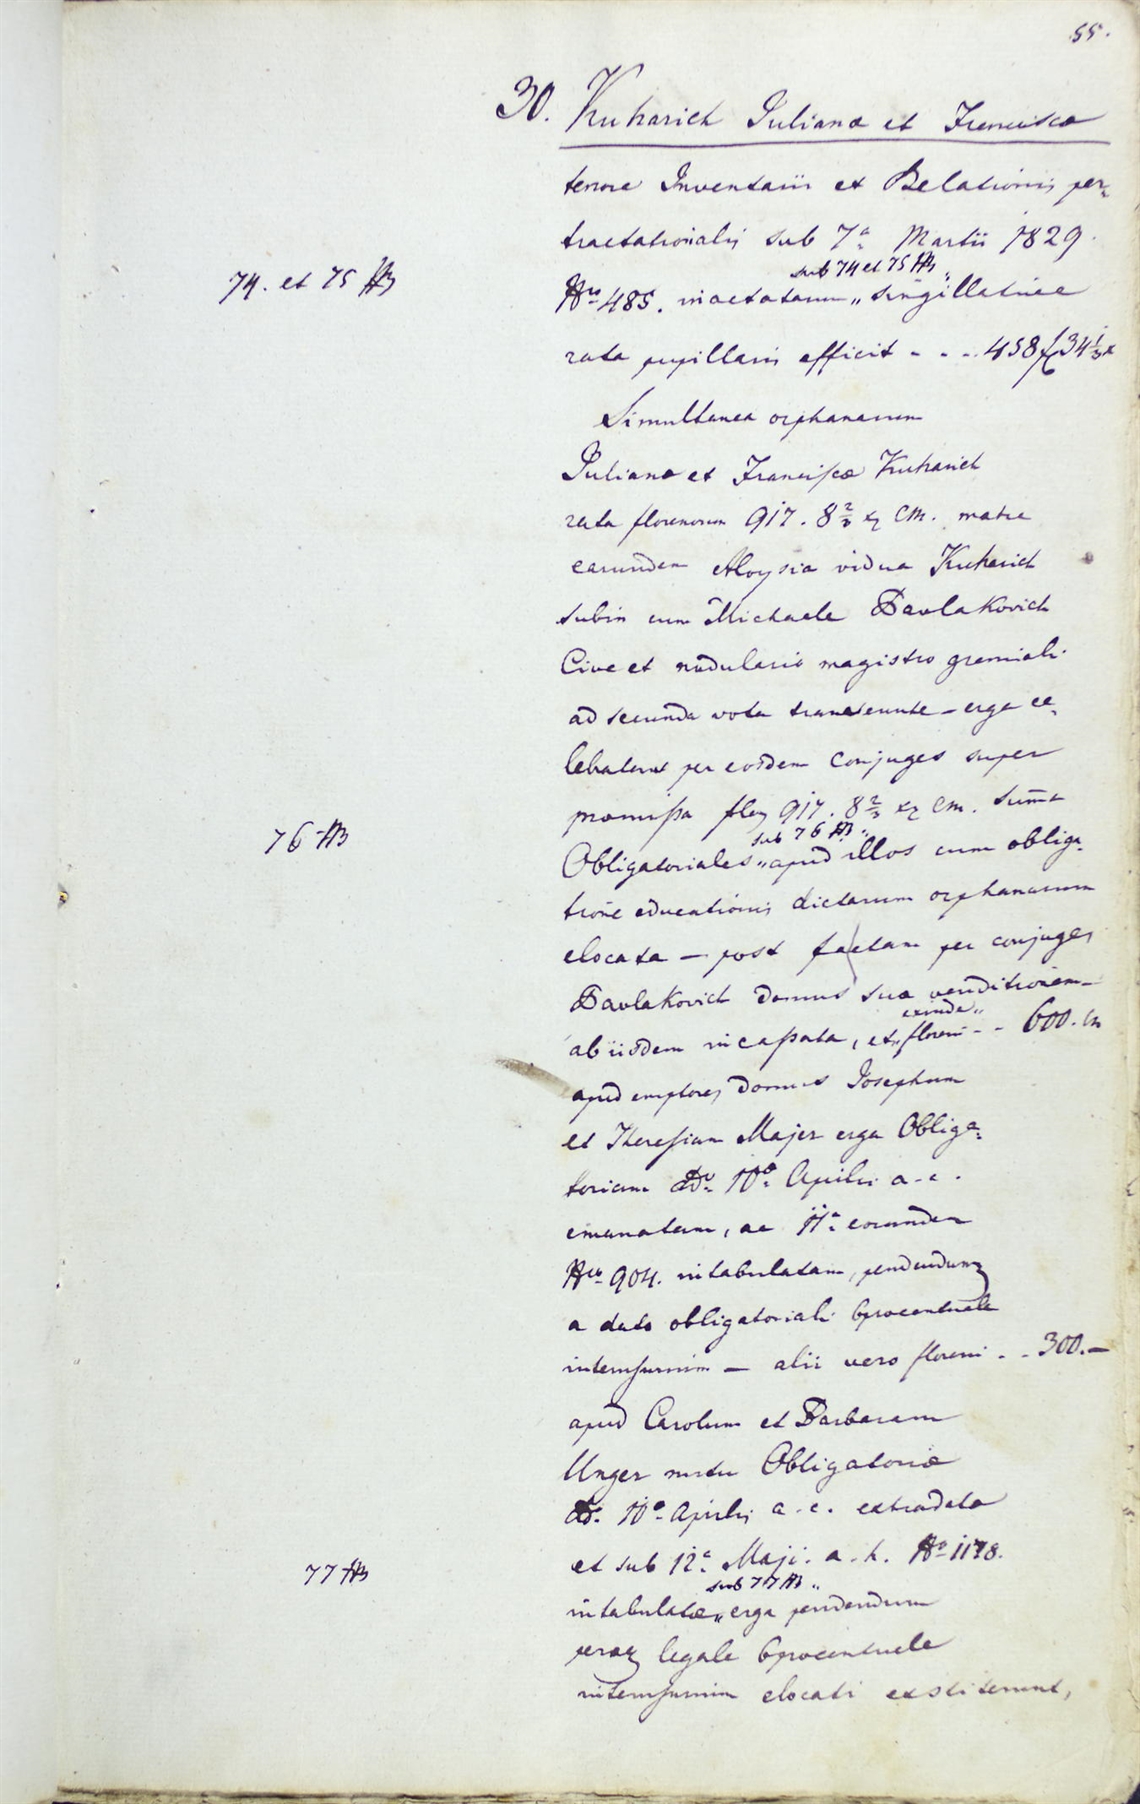 55.
30. Kuharich Juliana et Francisca
tenore Inventarii et Relationis per=
tractationalis sub 7a Martii 1829.
74. et 75
sub 74 et 75
Nro 485. inactatarum „ singillative
rata pupillaris efficit - - - 458 f 34 1/3 x
Simultanea orphanarum
Juliana et Francisca Kuharich
rata florenorum 917. 8 2/3 xr CM. matre
earundem Aloysia vidua Kuharich
subin cum Michaele Pavlakovich
Cive et nodulario magistro gremiali
ad secunda vota transeunte – erga ce=
lebatas per eosdem Conjuges super
præmissa flor 917. 8 2/3 xr CM. summa
76
sub 76
Obligatoriales „ apud illos cum obliga=
tione educationis dictarum orphanarum
elocata – post factam per conjuges
Pavlakovich domus suæ venditionem –
exinde „
ab iisdem incassata, et „ floreni - - 600. CM
apud emptores domus Josephum
et Theresiam Majer erga Obliga=
toriam ddo 10a Aprilis a. c.
emanatam, ac 11a eorundem
Nro 904. intabulatam, pendendum
a dato obligatoriali 6procentuale
interusurium – alii vero floreni - - 300. –
apud Carolum et Barbaram
Unger nutu Obligatoriæ
ddo. 10a Aprilis a. c. extradatæ
et sub 12a Maji. a. h. No 1178.
77
sub 77 „
intabulatæ „ erga pendendum
legale 6procentuale
interusurium elocati exstiterunt,